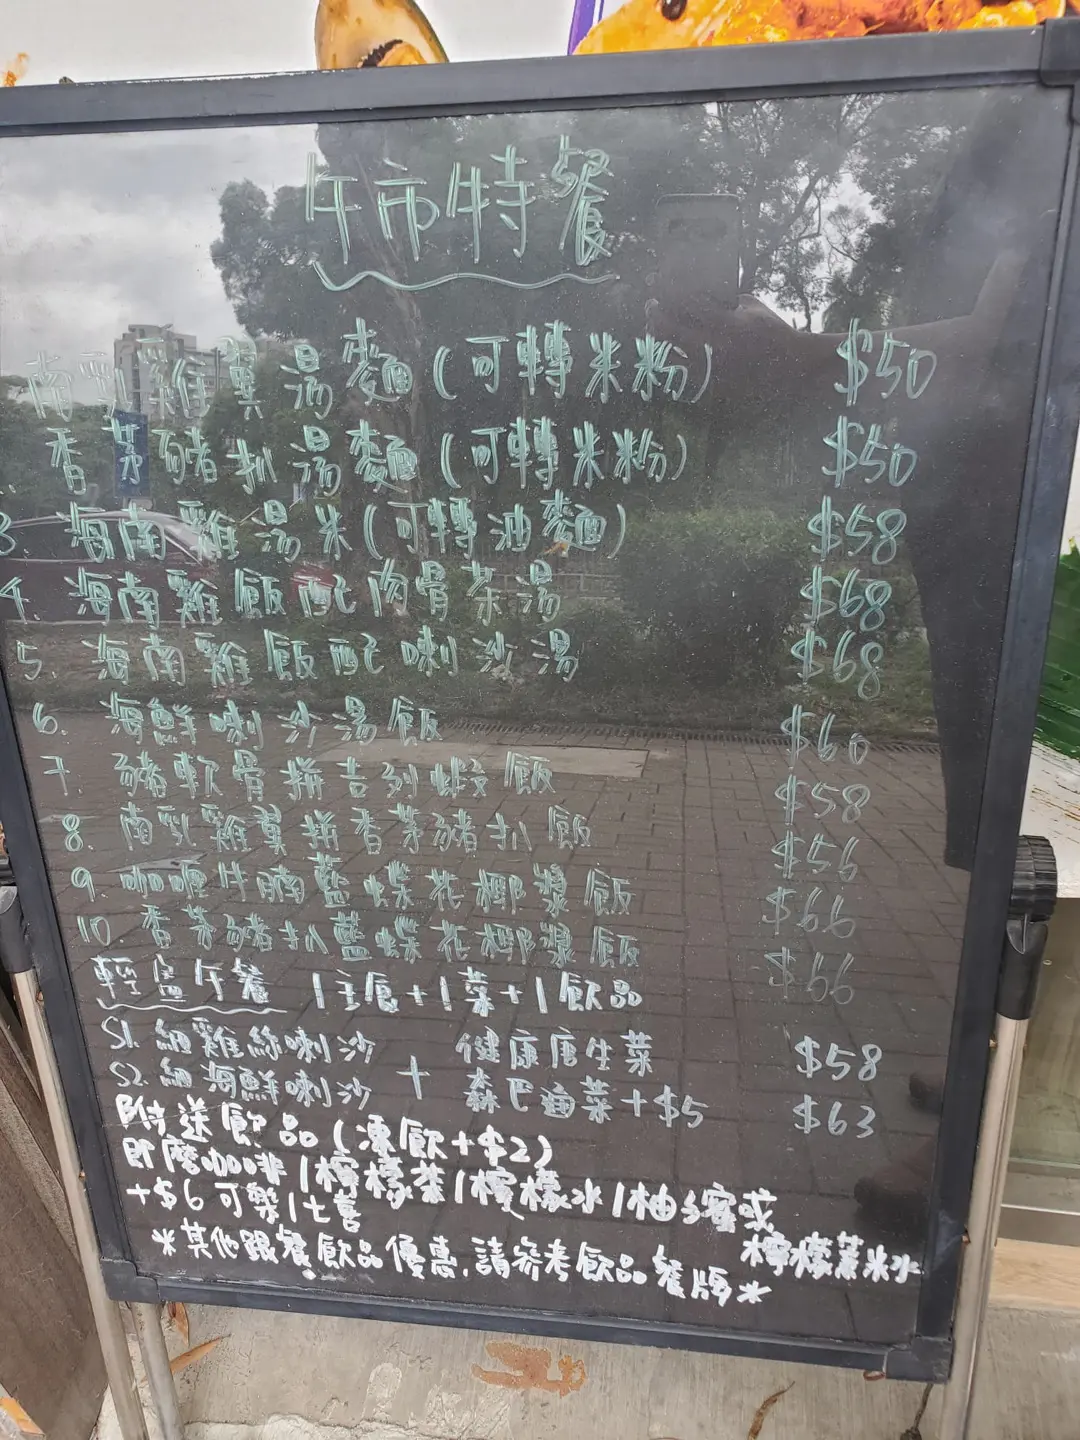 午市特餐
南乳雞翼湯麵(可轉米粉) $50
香茅豬扒湯麵(可轉米粉) $50
3. 海南雞湯米(可轉油麵) $58
4. 海南雞飯配肉骨茶湯 $68
5. 海南雞飯配喇沙湯 $68
6. 海鮮喇沙湯飯 $60
7. 豬軟骨拼吉列蝦飯 $58
8. 南乳雞翼拼香茅豬扒飯 $56
9. 咖喱牛腩藍蝶花椰漿飯 $66
10. 香茅豬扒藍蝶花椰漿飯 $66
輕盈午餐 1主食+1菜+1飲品
S1. 細雞絲喇沙 + 健康唐生菜 $58
S2. 細海鮮喇沙 森巴通菜+$5 $63
附送飲品(凍飲+$2)
即磨咖啡/檸檬茶/檸檬水/柚子蜜或
檸檬薏米水
+$6可樂/七喜
*其他跟餐飲品優惠,請參考飲品餐版*